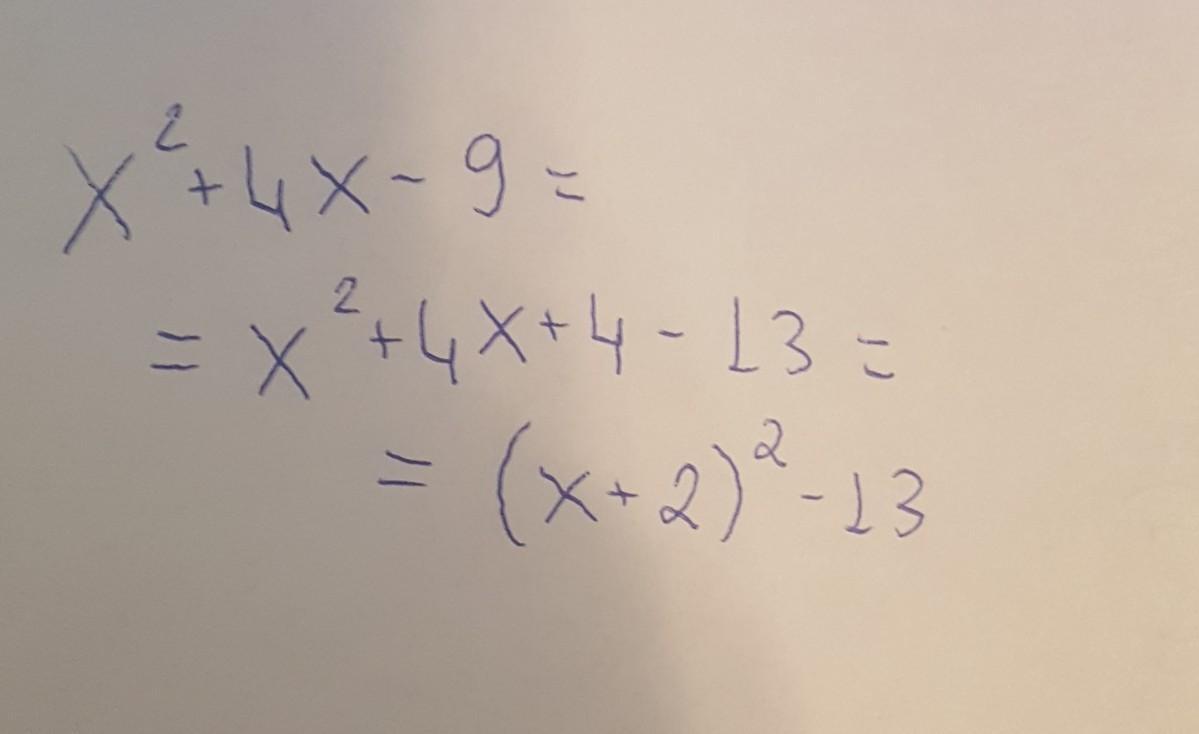 x² + 4x - 9 =
= x² + 4x + 4 - 13 =
= (x + 2)² - 13